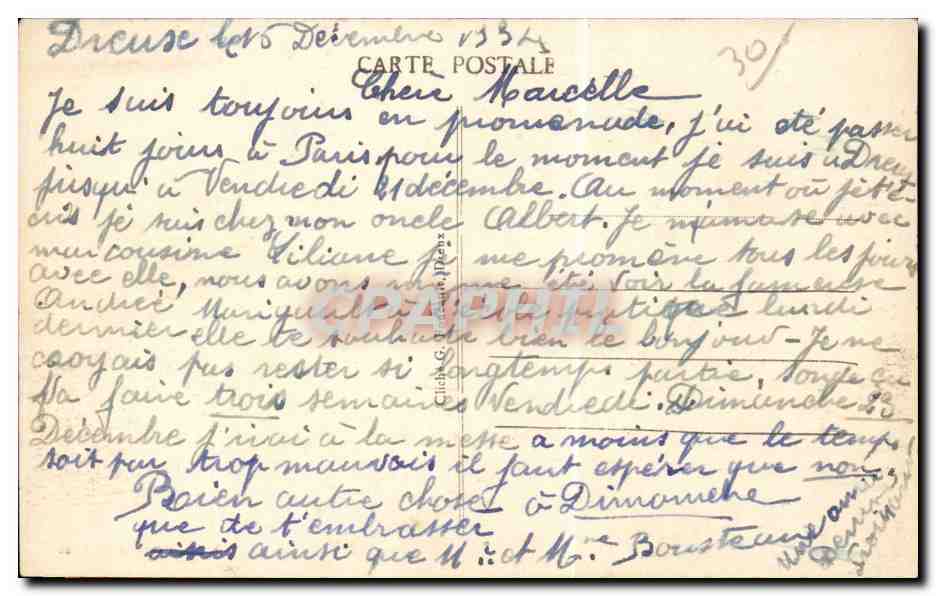 Dreuse le 16 Décembre 1934
30/
CARTE POSTALE
Chère Marcelle
Je suis toujours en promenade, j'ai été passer
huit jours à Paris, pour le moment je suis à Dreux
jusqu'à Vendredi 21 décembre. Au moment où je t'é-
cris je suis chez mon oncle Albert. Je m'amuse avec
ma cousine Liliane je me promène tous les jours
avec elle, nous avons même été voir la fameuse
Andrée lundi
dernier elle te souhaite bien le bonjour - Je ne
croyais pas rester si longtemps partie, songe
Va faire trois semaines Vendredi. Dimanche 23
Décembre j'irai à la messe a moins que le temps
soit par trop mauvais il faut espérer que non.
Baien autre chose à Dimanche
que de t'embrasser
ainsi que Mr et Mme
Une amie
Cliché G. Dreux
CPAPHIL